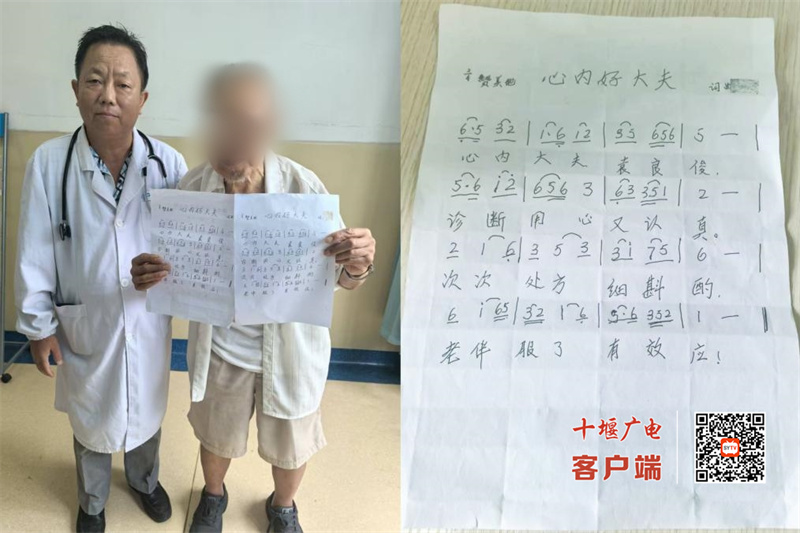 心内好大夫
赞美曲 心内好大夫 词
6·5 32 | 1·6 12 | 35 656 | 5 — |
心内大夫袁良俊,
5·6 i2 | 656 3 | 63 351 | 2 — |
诊断用心又认真。
2 1 6 | 3 5 3 | 31 75 | 6 — |
次次处方细斟酌,
6 i 65 | 32 1 6 | 5·6 352 | 1 — |
老伴服了有效应!
十堰广电
客户端
SYTV